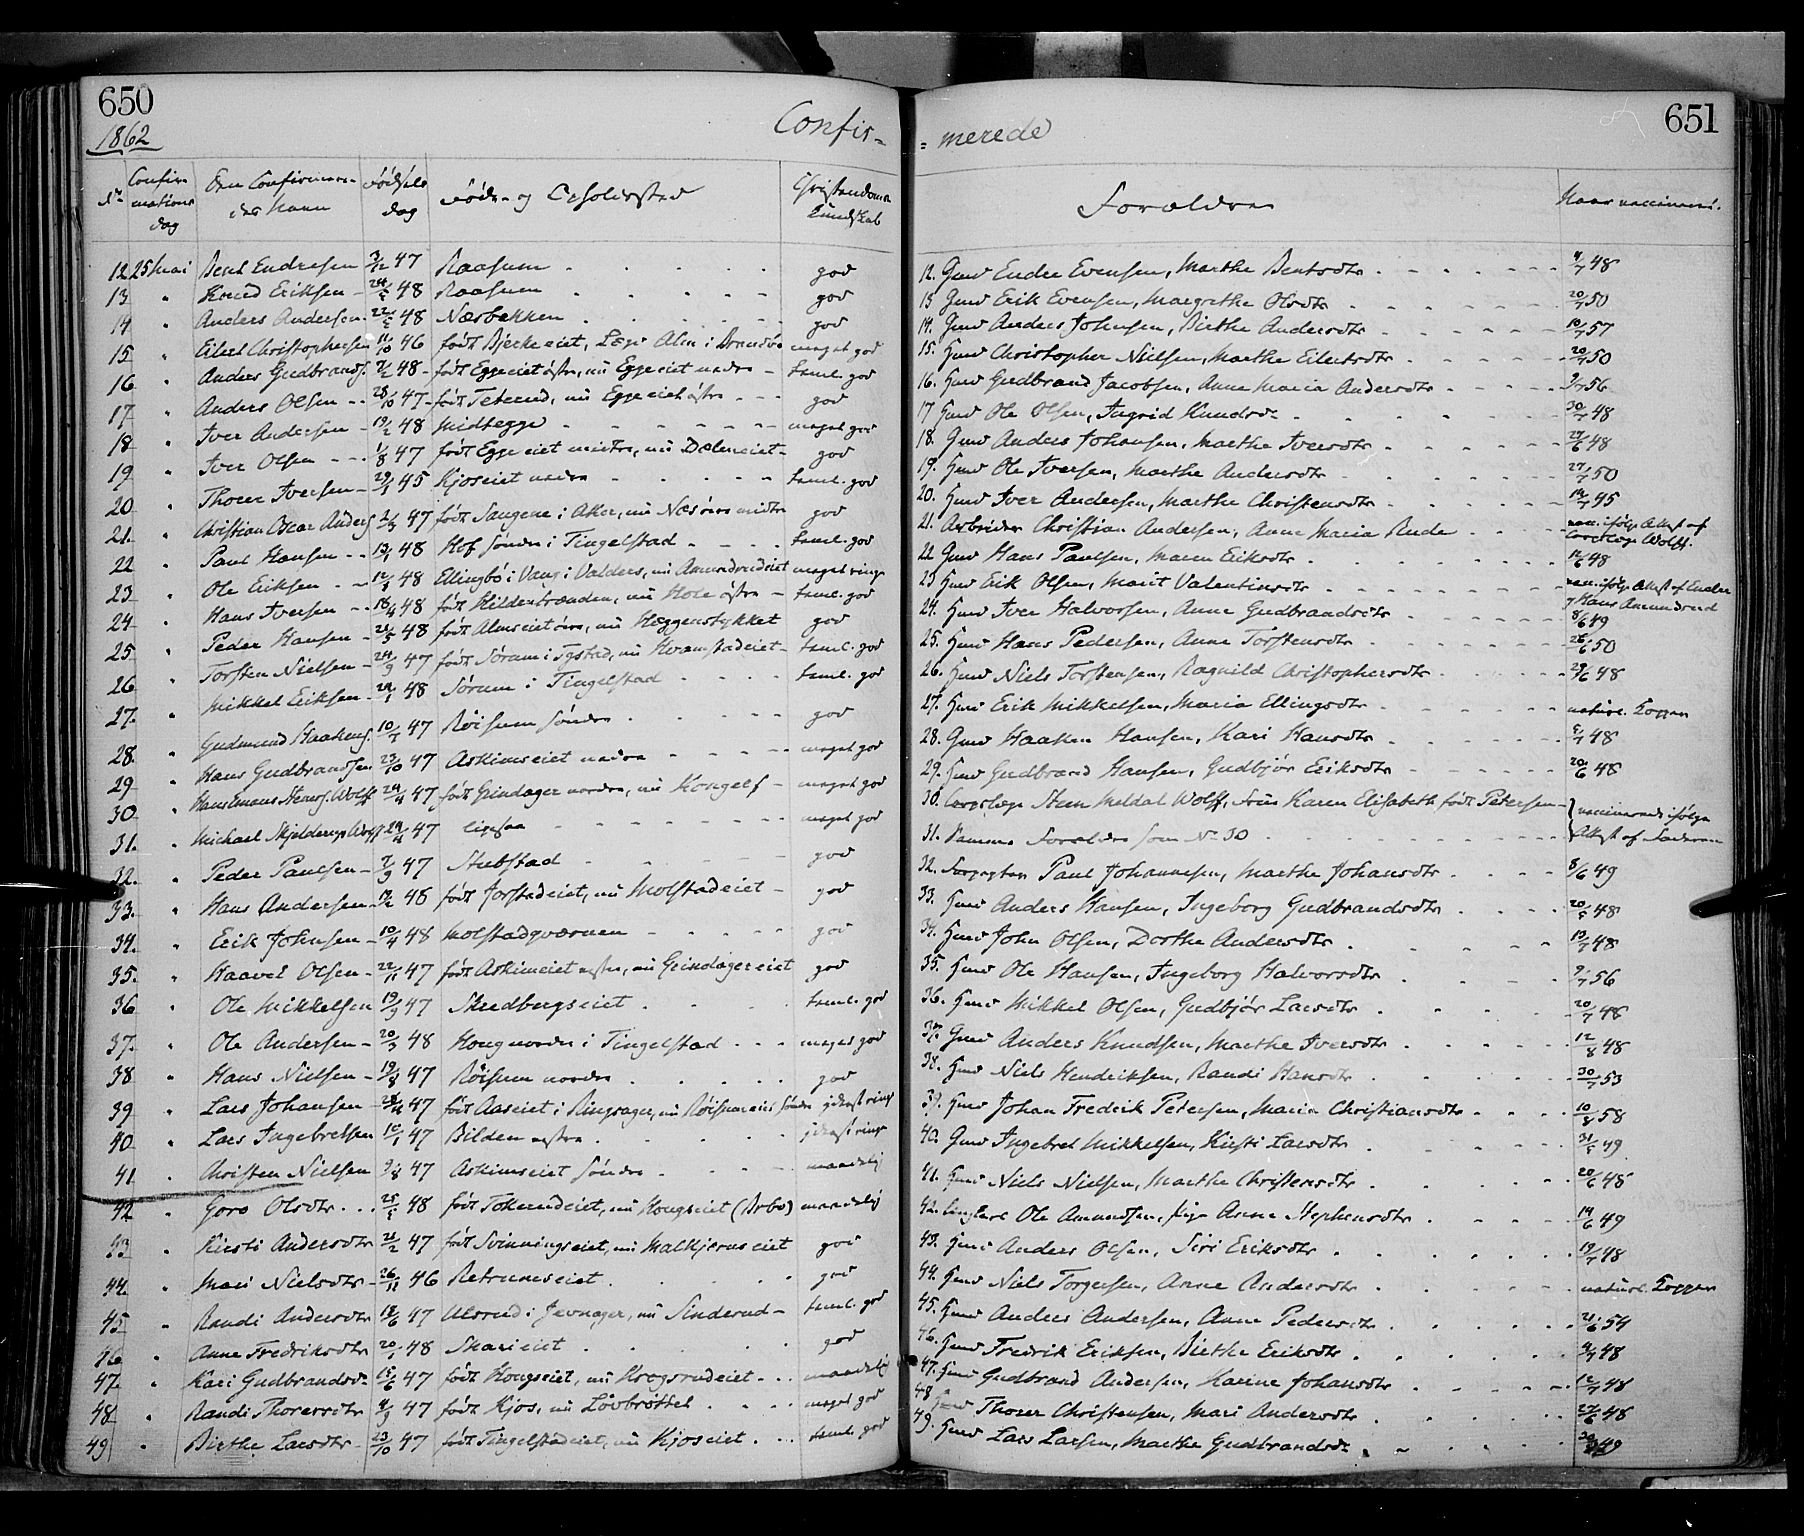 650
1862
Confir=
No
Confir-
mations
dag
Den Confirmere-
des Navn
Fødsels
dag
Føde- og Opholdssted
Christendoms
Kundskab
12 25 Mai Bent Endresen 3/12 47 Raasum god
13 " Knud Eriksen 48 Raasum god
14 " Anders Andersen 48 Næsbakken god
15 " Eilert Christophersen 11/10 46 født Bjerkeeiet, Alm i Brandbo meget god
16 " Anders Gudbrands. 48 født Eggeeiet østre, nu Eggeeiet nedre teml. god
17 " Anders Olsen 28/10 47 født Teterud, nu Eggeeiet østre god
18 " Iver Andersen 19/2 48 Midtegge meget god
19 " Iver Olsen 1/8 47 født Eggeeiet midtre, nu Dæleneiet god
20 " Thorer Iversen 45 Kjoseiet nedre teml. god
21. " Christian Oscar Anders. 47 født Saugene i Aker, nu Næs øvre midtre god
22 " Paul Hansen 48 Hof søndre i Tingelstad teml. god
23 " Ole Eriksen 48 Ellingbø i Vang i Valders, nu Amundrudeiet meget ringe
24 " Hans Iversen 18/4 48 født Kildenbrænden, nu Hole østre teml. god
25 " Peder Hansen 48 født Almseiet øvre, nu Heggenstykket god
26 " Torsten Nielsen 24/9 47 født Sørum i Tgstad, nu Hvamstadeiet teml. god
27. " Mikkel Eriksen 48 Sørum i Tingelstad teml. god
28. " Gudmund Haakens. 10/7 47 Røisum søndre god
29 " Hans Gudbrandsen 23/10 47 Askimseiet nedre meget god
30 " Hans Emans Steners. Wolff 24/4 47 født Grindager nordre, nu Kongelf meget god
31. " Michael Skjelderup Wolff 24/4 47 ligesaa meget god
32. " Peder Paulsen 7/9 47 Stubstad god
33. " Hans Andersen 48 født Jorstadeiet, nu Molstadeiet god
34. " Erik Johnsen 10/4 48 Molstadqværnen god
35. " Haavel Olsen 22/11 47 født Askimeiet vestre, nu Grindagereiet god
36 " Ole Mikkelsen 19/9 47 Skredbergseiet teml. god
37. " Ole Andersen 20/3 48 Houg nordre i Tingelstad meget god
38 " Hans Nielsen 19/8 47 Røisum nordre god
39 " Lars Johansen 47 født Aaseiet i Ringsager, nu Røisumeiet søndre yderst ringe
40 " Lars Ingebretsen 10/1 47 Bilden vestre yderst ringe
41 " Christen Nielsen 9/8 47 Askimseiet søndre maadelig
42 " Goro Olsdtr 48 født Tokerudeiet, nu Hougseiet (Arbo) maadelig
43 " Kirsti Andersdtr 47 født Svinningseiet, nu Malkjernseiet god
44. " Mari Nielsdtr 26/11 46 Retrumseiet god
45 " Randi Andersdtr 47 Ulsrud i Jevnager, nu Sinderud teml. god
46 " Anne Fredriksdtr 48 Skarieiet god
47. " Kari Gudbrandsd. 47 født Hougseiet, nu Horgsrudeiet maadelig
48 " Randi Thorersdtr 4/9 47 født Kjos, nu Løvbrøttet meget god
49 " Birthe Larsdtr 23/10 47 født Tingelstadeiet, nu Kjoseiet teml. god
651
= merede
Forældre
Naar vaccineret.
12. Gmd Endre Evensen, Marthe Bentsdtr 4/7 48
13 Gmd Erik Evensen, Margrethe Olsdtr 20/7 50
14. Gmd Anders Johnsen, Birthe Andersdtr 10/7 57
15. Hmd Christopher Nielsen, Marthe Eilertsdtr 20/7 50
16. Hmd Gudbrand Jacobsen, Anne Maria Andersdtr 9/7 56
17 Hmd Ole Olsen, Ingrid Knudsdr 30/7 48
18. Gmd Anders Johansen, Marthe Iversdtr 6 48
19. Hmd Ole Iversen, Marthe Andersdtr 27/7 50
20. Hmd Iver Andersen, Marthe Christensdtr 14/7 45
21. Arbeider Christian Andersen, Anne Maria Rude vacc. ifølge Attest af
Corpslæge Wolff.
22 Gmd Hans Paulsen, Maren Eriksdtr 48
23 Hmd Erik Olsen, Marit Valentinsdtr vacc. ifølge Attest af Ender
Hans Amundrud
24. Hmd Iver Halvorsen, Anne Gudbrandsdtr 8/6 49
25. Hmd Hans Pedersen, Anne Torstensdtr 50
26. Hmd Niels Torstensen, Ragnild Christophersdtr 29/6 48
27. Hmd Erik Mikkelsen, Maria Ellingsdtr naturl. Kopper
28. Gmd Haaken Hansen, Kari Hansdtr 48
29. Hmd Gudbrand Hansen, Gudbjør Eriksdtr 20/6 48
30. Corpslæge Steen Meldal Wolff, Fru Karen Elisabeth født Petersen vaccinerede ifølge
31. Samme Forældre som No 30 Attest af Faderen
32. Paul Johannesen, Marthe Johansdtr 8/6 49
33. Hmd Anders Hansen, Ingeborg Gudbrandsdtr 48
34. Hmd John Olsen, Dorthe Andersdtr 13/7 48
35. Hmd Ole Hansen, Ingeborg Halvorsdtr 9/7 56
36. Hmd Mikkel Olsen, Gudbjør Larsdtr 20/7 48
37. Gmd Anders Knudsen, Marthe Iversdtr 12/8 48
38. Hmd Niels Hendriksen, Randi Hansdtr 30/7 53
39. Hmd Johan Fredrik Petersen, Maria Christiansdtr 10/8 58
40. Gmd Ingebret Mikkelsen, Kirsti Larsdtr 49
41. Hmd Niels Nielsen, Marthe Christensdtr 20/6 48
42. Ungkarl Ole Amundsen, Pige Anne Stephensdtr 14/6 49
43. Hmd Anders Olsen, Siri Eriksdtr 19/7 48
44. Hmd Niels Torgersen, Anne Andersdtr naturl. Kopper
45. Hmd Anders Andersen, Anne Pedersdtr 21/6 54
46. Hmd Fredrik Eriksen, Birthe Eriksdtr 48
47. Hmd Gudbrand Andersen, Karine Johansdtr 12/7 48
48 Gmd Thorer Christensen, Mari Andersdtr 27/6 48
49. Hmd Lars Larsen, Marthe Gudbrandsdr 49